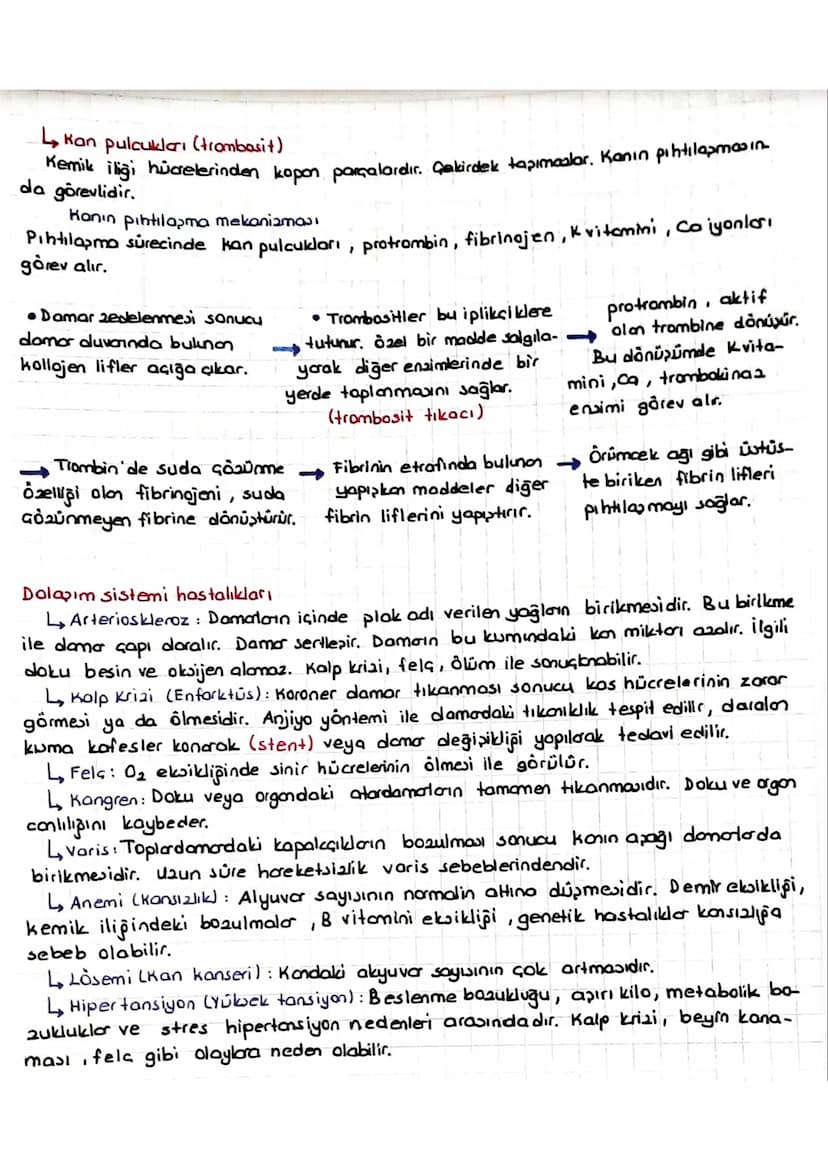 ↳ Kan pulcukları (trombosit)
Kemik iliği hücrelerinden kopan parçalardır. Çekirdek taşımazlar. Kanın pıhtılaşmasın-
da görevlidir.
Kanın pıhtılaşma mekanizması
Pıhtılaşma sürecinde kan pulcukları, protrombin, fibrinojen, K vitamini, Ca iyonları
görev alır.
• Damar zedelenmesi sonucu
damar duvarında bulunan
kollajen lifler açığa çıkar.
• Trombositler bu iplikçiklere
→ tutunur. özel bir madde salgıla-
yarak diğer enzimlerinde bir
yerde toplanmasını sağlar.
(trombosit tıkacı)
protrombin, aktif
→ olan trombine dönüşür.
Bu dönüşümde K vita-
mini, Ca, trombokinaz
enzimi görev alır.
→ Trombin'de suda çözünme
özelliği olan fibrinojeni, suda
çözünmeyen fibrine dönüştürür.
→ Fibrinin etrafında bulunan
yapışkan maddeler diğer
fibrin liflerini yapıştırır.
→ Örümcek ağı gibi üstüs-
te biriken fibrin lifleri
pıhtılaşmayı sağlar.
Dolaşım sistemi hastalıkları
↳ Arterioskleroz : Damarların içinde plak adı verilen yağların birikmesidir. Bu birikme
ile damar çapı daralır. Damar sertleşir. Damarın bu kısmındaki kan miktarı azalır. İlgili
doku besin ve oksijen alamaz. Kalp krizi, felç, ölüm ile sonuçlanabilir.
↳ Kalp Krizi (Enfarktüs) : Koroner damar tıkanması sonucu kas hücrelerinin zarar
görmesi ya da ölmesidir. Anjiyo yöntemi ile damardaki tıkanıklık tespit edilir, daralan
kısma kafesler konarak (stent) veya damar değişikliği yapılarak tedavi edilir.
↳ Felç : O₂ eksikliğinde sinir hücrelerinin ölmesi ile görülür.
↳ Kangren : Doku veya organdaki atardamarların tamamen tıkanmasıdır. Doku ve organ
canlılığını kaybeder.
↳ Varis : Toplardamardaki kapakçıkların bozulması sonucu kanın aşağı damarlarda
birikmesidir. Uzun süre hareketsizlik varis sebeblerindendir.
↳ Anemi (Kansızlık) : Alyuvar sayısının normalin altına düşmesidir. Demir eksikliği,
kemik iliğindeki bozulmalar, B vitamini eksikliği, genetik hastalıklar kansızlığa
sebeb olabilir.
↳ Lösemi (Kan kanseri) : Kandaki akyuvar sayısının çok artmasıdır.
↳ Hipertansiyon (Yüksek tansiyon) : Beslenme bozukluğu, aşırı kilo, metabolik bo-
zukluklar ve stres hipertansiyon nedenleri arasındadır. Kalp krizi, beyin kana-
ması, felç gibi olaylara neden olabilir.